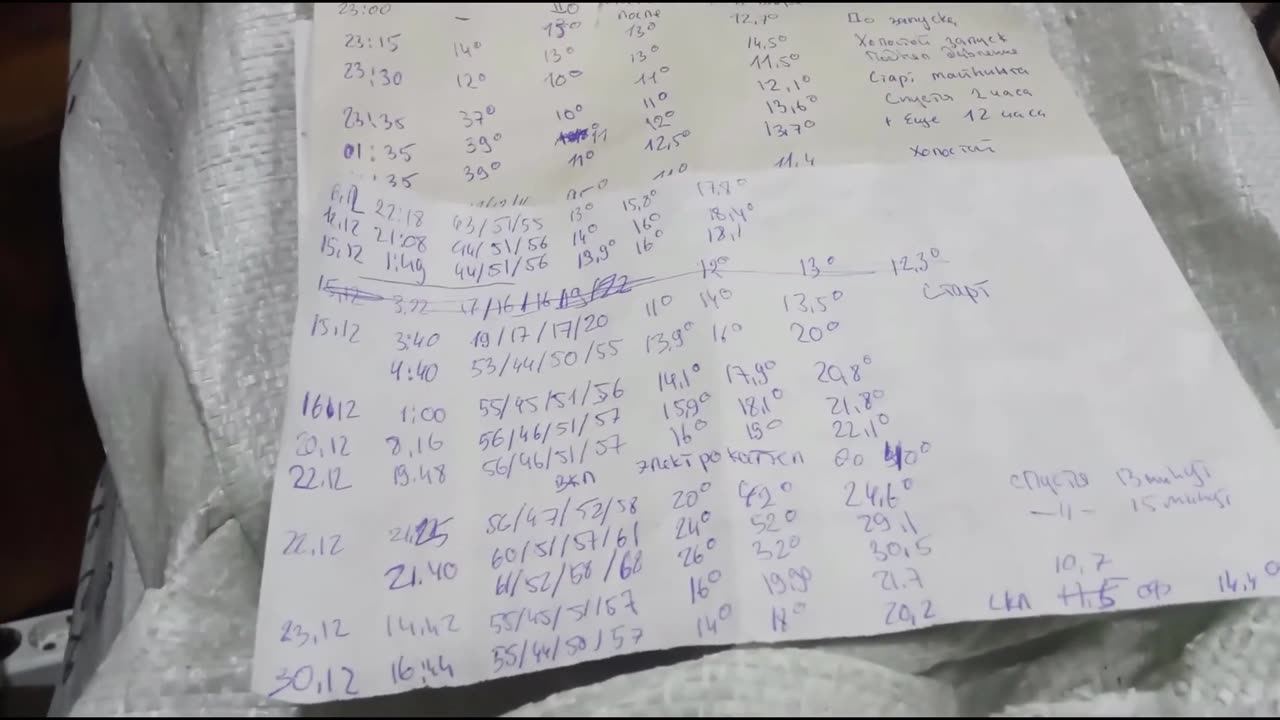 23:00 — 110 после
15° 13° 12,7° До запуска
23:15 14° 13° 13° 14,5° Холостой запуск
23:30 12° 10° 11° 11,5°
23:35 37° 10° 11° 12,1° Старт майнинга
01:35 39° 11 12° 13,6° Спустя 2 часа
:35 39° 11° 12,5° 13,7° + Еще 12 часа
11,4 Холостой
22:18 43/51/55 13° 15,8° 17,8°
12,12 21:08 44/51/56 14° 16° 18,4°
15,12 1:49 44/51/56 13,9° 16° 18,1
15,12 3,22 17/16/16/19/22 12° 13° 12,3°
15,12 3:40 19/17/17/20 11° 14° 13,5° Старт
4:40 53/44/50/55 13,9° 16° 20°
16,12 1:00 55/45/51/56 14,1° 17,9° 20,8°
20,12 8,16 56/46/51/57 15,9° 18,1° 21,8°
22,12 19.48 56/46/51/57 16° 19° 22,1°
ВКЛ Электрокотел до 40°
22,12 21,25 56/47/52/58 20° 42° 24,6° спустя 13 минут
21.40 60/51/57/61 24° 52° 29,1 —//— 15 минут
61/52/58/62 26° 32° 30,5
23,12 14,42 55/45/51/57 16° 19,9° 21.7 10,7
30,12 16:44 55/44/50/57 14° 18° 20,2 СКЛ 11,5 14,4°